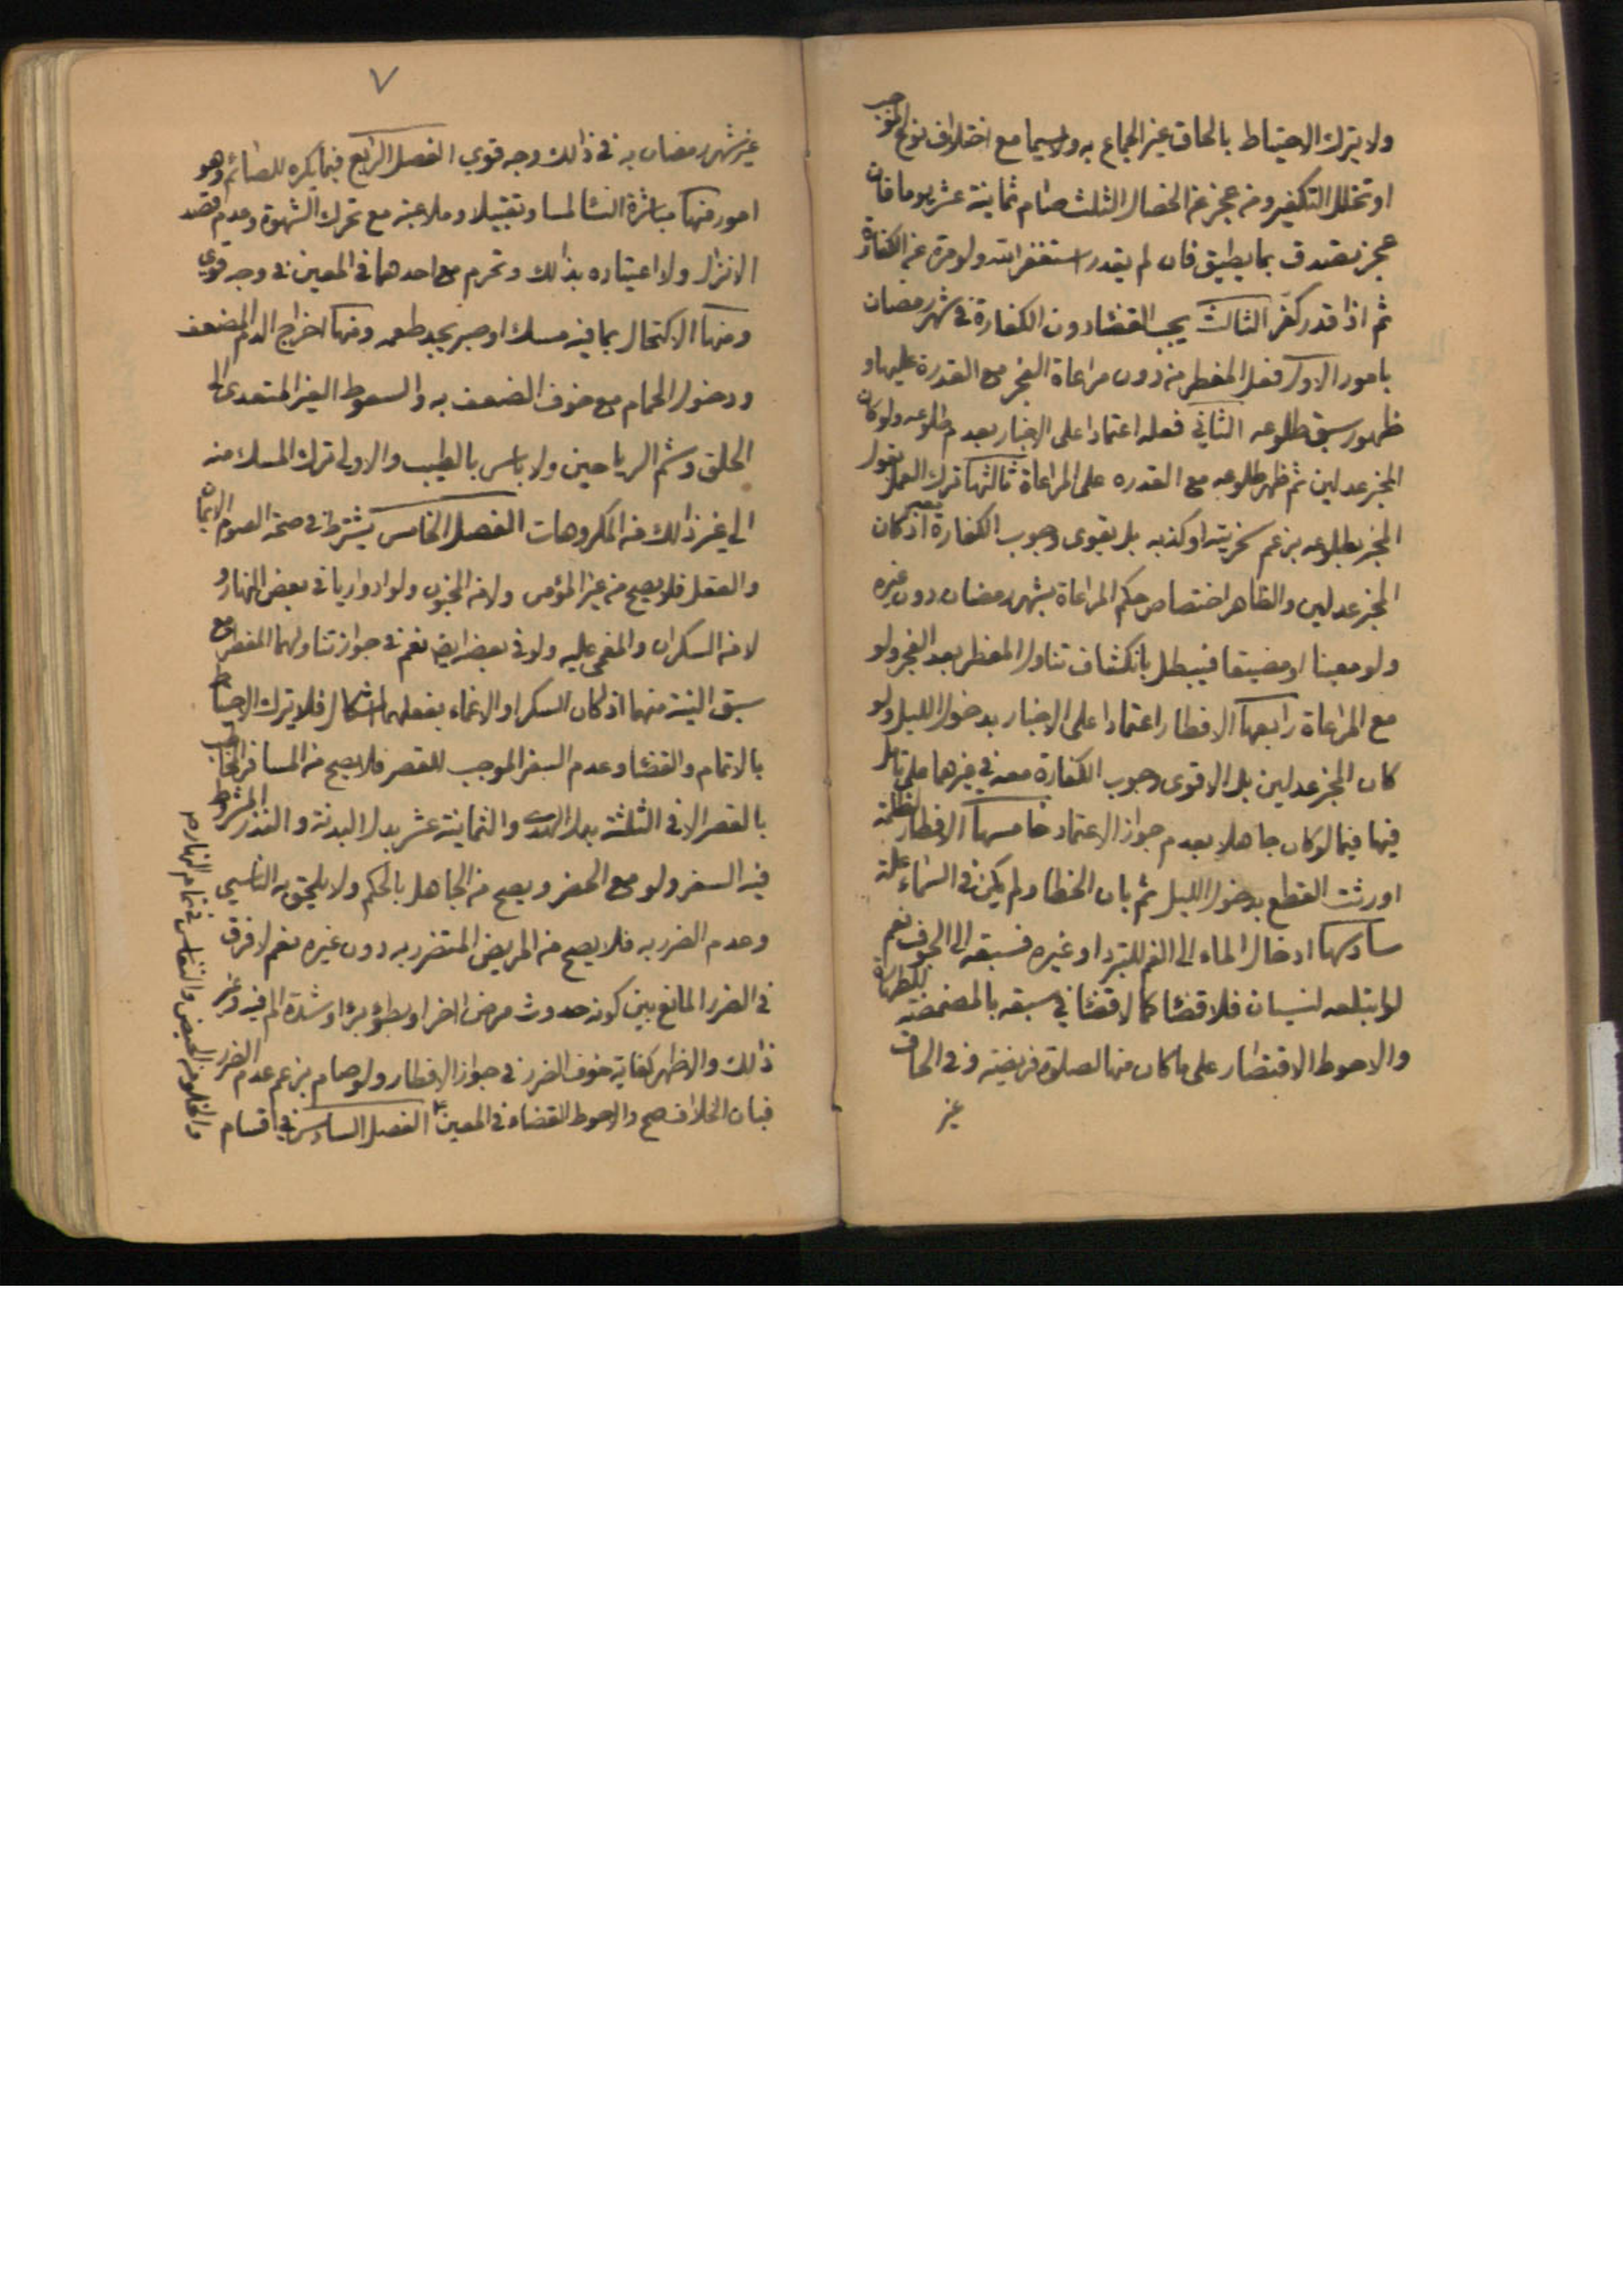 ولا يترك الاحتياط بالحاق غير الجماع به ولا سيما مع اختلاف نوع الموجب
او تخلل التكفير ومن عجز عن الخصال الثلث صام ثمانية عشر يوما فان
عجز تصدق بما يطيق فان لم يقدر استغفر الله ولو مرة عن الكفارة
ثم اذا قدر كفر الثالث يجب القضا دون الكفارة في شهر رمضان
بامور الاول فعل المفطر من دون مراعاة الفجر مع القدرة عليها و
ظهور سبق طلوعه الثاني فعله اعتمادا على الاخبار بعدم طلوعه ولو كان
المخبر عدلين ثم ظهر طلوعه مع القدره على المراعاة ثالثها ترك العمل بقول
المخبر بطلوعه بزعم سخريته او كذبه بل يقوى وجوب الكفارة اذ كان
المخبر عدلين والظاهر اختصاص حكم المراعاة بشهر رمضان دون غيره
ولو معينا او مضيقا فيبطل بانكشاف تناول المفطر بعد الفجر ولو
مع المراعاة رابعها الافطار اعتمادا على الاخبار بدخول الليل ولو
كان المخبر عدلين بل الاقوى وجوب الكفارة معه في غيرهما على تامل
فيها فيما لو كان جاهلا بعدم جواز الاعتماد خامسها الافطار لظلمة
اورثت القطع بدخول الليل ثم بان الخطا ولم يكن في السماء علة
سادسها ادخال الماء الى الفم للتبرد او غيره فسبقه الى الجوف نعم
لو ابتلعه لنسيان فلا قضا كما لا قضا في سبقه بالمضمضة للطهارة
والاحوط الاقتصار على ما كان منها لصلوة فريضة وفي الحاق
غير
٧
غير شهر رمضان به في ذالك وجه قوي الفصل الرابع فيما يكره للصائم وهو
امور منها مباشرة النسا لمسا وتقبيلا وملاعبة مع تحرك الشهوة وعدم قصد
الانزال ولا اعتياده بذالك وتحرم مع احدهما في المعين في وجه قوي
ومنها الاكتحال بما فيه مسك او صبر يجد طعمه ومنها اخراج الدم المضعف
ودخول الحمام مع خوف الضعف به والسعوط الغير المتعدى الى
الحلق وشم الرياحين ولا باس بالطيب والاولى ترك المسك منه
الى غير ذالك من المكروهات الفصل الخامس يشترط في صحة الصوم الايمان
والعقل فلا يصح من غير المؤمن ولا من المجنون ولو ادواريا في بعض النهار و
لا من السكران والمغمى عليه ولو في بعضه ايضا نعم في جواز تناولهما المفطر مع
سبق النية منهما اذ كان السكر او الاغماء بفعلهما اشكال فلا يترك الاحتياط
بالاتمام والقضا وعدم السفر الموجب للقصر فلا يصح من المسافر المخاطب
بالقصر الا في الثلثة بدل الهدى والثمانية عشر بدل البدنة والنذر المشروط
فيه السفر ولو مع الحضر ويصح من الجاهل بالحكم ولا يلحق به الناسي
وعدم الضرر به فلا يصح من المريض المتضرر به دون غيره نعم لا فرق
في الضرر المانع بين كونه حدوث مرض اخر او بطؤ برء او شدة الم فيه وغير
ذالك والاظهر كفاية خوف الضرر في جواز الافطار ولو صام بزعم عدم الضرر
فبان الخلاف صح والاحوط القضاء في المعين الفصل السادس في اقسام
والخلو من الحيض والنفاس في تمام النهار صح